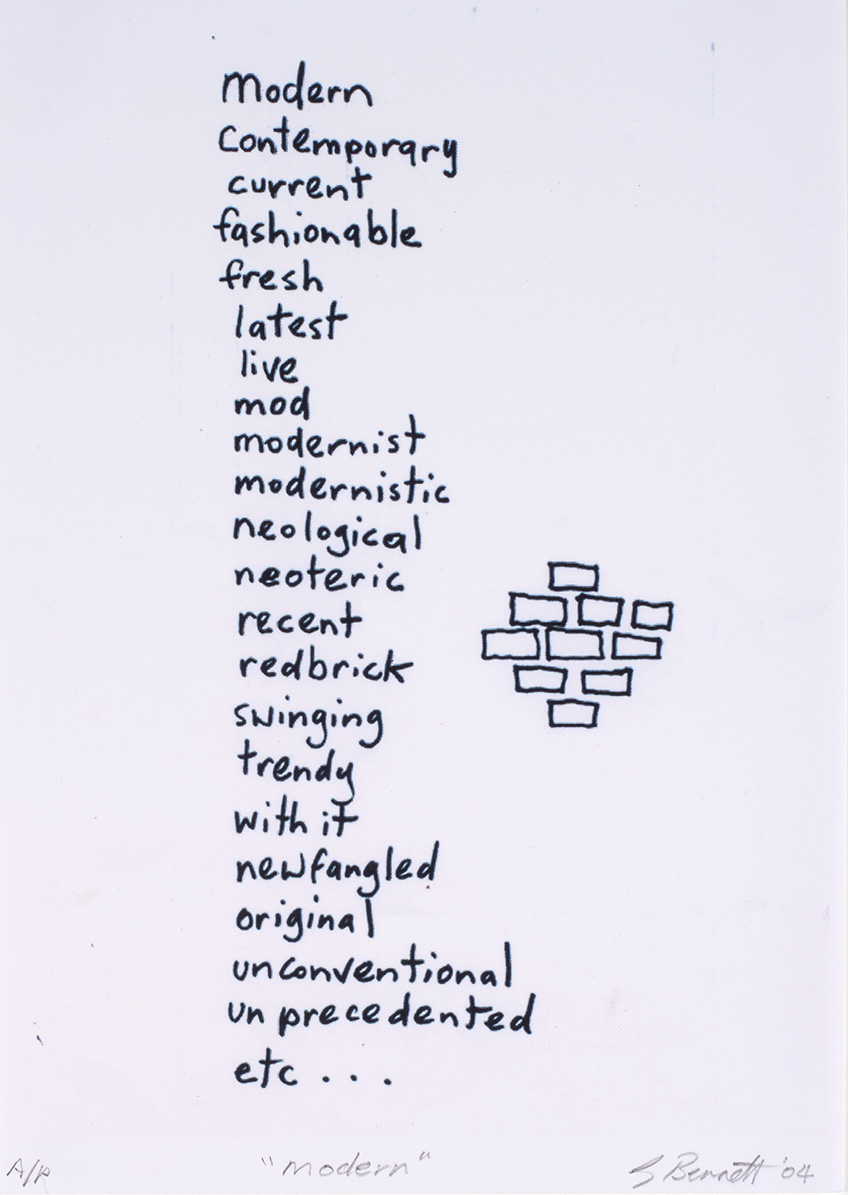 Modern
Contemporary
current
fashionable
fresh
latest
live
mod
modernist
modernistic
neological
neoteric
recent
redbrick
swinging
trendy
with it
newfangled
original
unconventional
unprecedented
etc . . .
A/P "modern" G Bennett '04